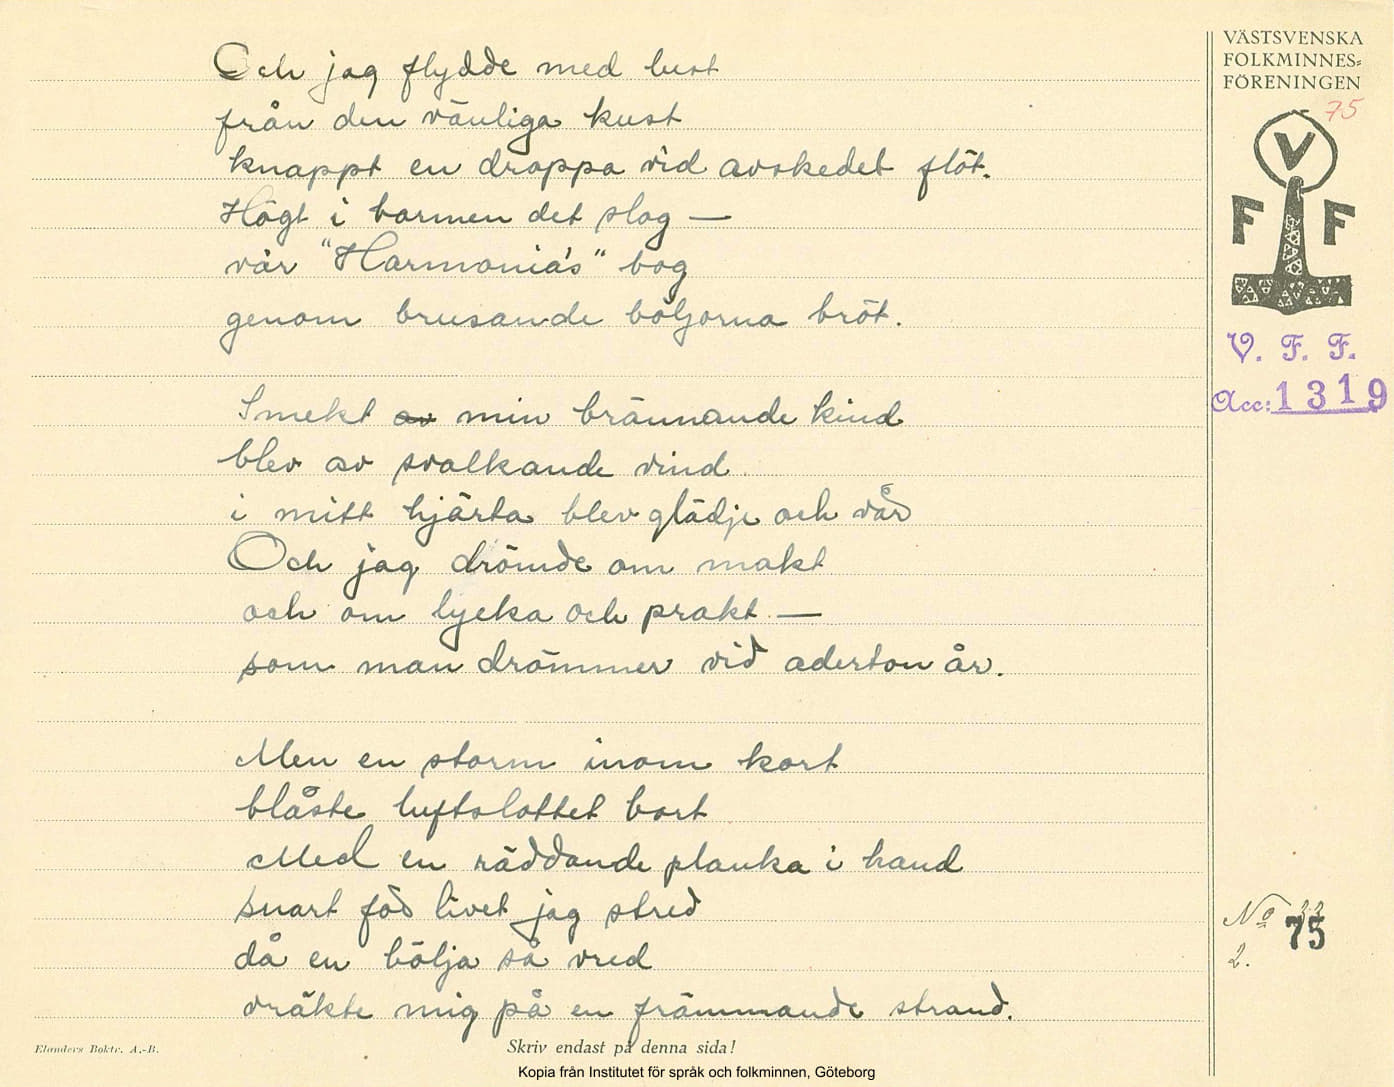 Och jag flydde med lust
från den vänliga kust
knappt en droppa vid avskedet flöt.
Högt i barmen det slog —
vår "Harmonia's" bog
genom brusande böljorna bröt.
Smekt av min brännande kind
blev av svalkande vind
i mitt hjärta blev glädje och vår
Och jag drömde om makt
och om lycka och prakt —
som man drömmer vid aderton år.
Men en storm inom kort
blåste luftslottet bort
Med en räddande planka i hand
snart föd livet jag stred
då en bölja så vred
vräkte mig på en främmande strand.
VÄSTSVENSKA
FOLKMINNES-
FÖRENINGEN
75
V
F F
V. F. F.
Acc: 1319
No 75
2.
Elanders Boktr. A.-B.
Skriv endast på denna sida!
Kopia från Institutet för språk och folkminnen, Göteborg